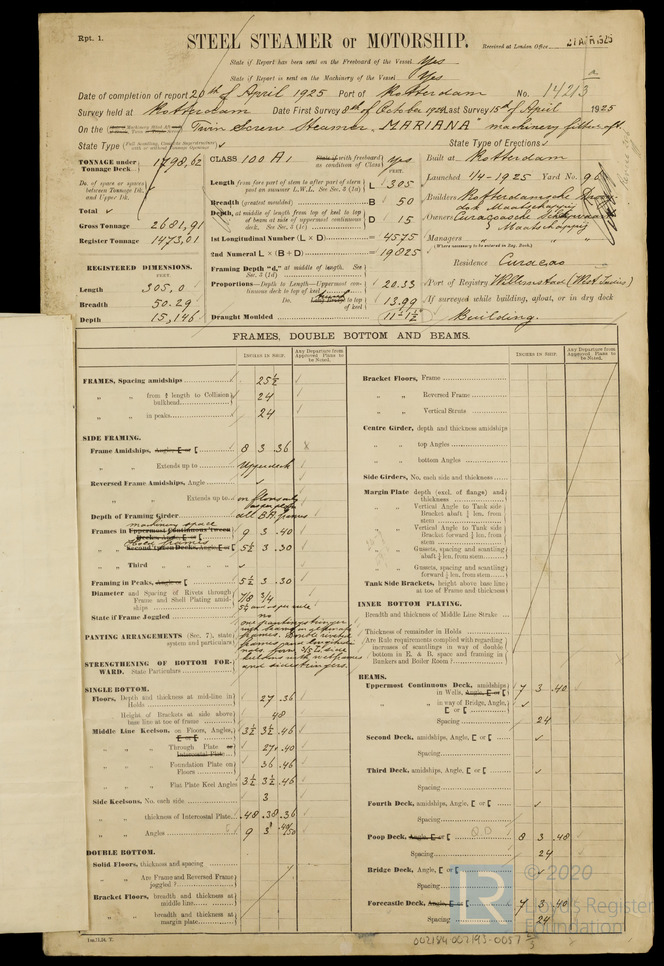 Rpt. 1.
STEEL STEAMER or MOTORSHIP.
Received at London Office 21 APR 1925
State if Report has been sent on the Freeboard of the Vessel Yes
State if Report is sent on the Machinery of the Vessel Yes
Date of completion of report 20th of April 1925 Port of Rotterdam No. 14213a
Survey held at Rotterdam Date First Survey 8th of October 1924 Last Survey 15th of April 1925
On the Twin Screw Steamer "MARIANA" machinery fitted aft
State Type State Type of Erections
TONNAGE under Tonnage Deck 1798,62
CLASS 100 A1 State if with freeboard as condition of Class Yes
Built at Rotterdam
Launched 1/4-1925 Yard No. 96
Length from fore part of stem to after part of stern post on summer L.W.L. See Sec. 3 (1a) L 305
Breadth (greatest moulded) B 50
Builders Rotterdamsche Droogdok Maatschappij
Total
Depth, at middle of length from top of keel to top of beam at side of uppermost continuous deck. See Sec. 3 (1c) D 15
Owners Curaçaosche Scheepvaart Maatschappij
Gross Tonnage 2681,91
Register Tonnage 1473,01
1st Longitudinal Number (L × D) = 4575
2nd Numeral L × (B + D) = 19825
Managers " "
(Where necessary to be entered in Reg. Book)
Residence Curacao
REGISTERED DIMENSIONS.
FEET.
Framing Depth "d," at middle of length. See Sec. 3 (1d)
Proportions—Depth to Length—Uppermost continuous deck to top of keel 20.33
Port of Registry Willemstad (West Indies)
Length 305,0
Breadth 50.29
Depth 15,146
Do. to top of keel 13.99
Draught Moulded
If surveyed while building, afloat, or in dry dock
Building.
FRAMES, DOUBLE BOTTOM AND BEAMS.
INCHES IN SHIP. Any Departure from Approved Plans to be Noted.
INCHES IN SHIP. Any Departure from Approved Plans to be Noted.
FRAMES, Spacing amidships 25½
" " from ⅕ length to Collision bulkhead 24
" " in peaks 24
SIDE FRAMING.
Frame Amidships, Angle, E or [ 8 3 .36
" " Extends up to Upperdeck
Reversed Frame Amidships, Angle
" " Extends up to
Depth of Framing Girder all B.A. frames
machinery space
Frames in Uppermost Continuous 'tween Decks 9 3 .40
Second 'tween Decks, Angle, E or [ 5½ 3 .30
" " Third " "
Framing in Peaks, Angle or [ 5½ 3 .30
Diameter and Spacing of Rivets through Frame and Shell Plating amidships 7/8 3/4
State if Frame Joggled no
PANTING ARRANGEMENTS (Sec. 7), state system and particulars
STRENGTHENING OF BOTTOM FORWARD. State Particulars
and sidestringers.
SINGLE BOTTOM.
Floors, Depth and thickness at mid-line in Holds 27 .36
" Height of Brackets at side above base line at toe of frame 48
Middle Line Keelson, on Floors, Angles, E or [ 3½ 3½ .46
" " Through Plate or Intercostal Plate 27 .40
" " Foundation Plate on Floors 36 .46
" " Flat Plate Keel Angles 3½ 3½ .46
Side Keelsons, No. each side 3
" " thickness of Intercostal Plate .48 .38 .36
" " Angles 9 3
DOUBLE BOTTOM.
Solid Floors, thickness and spacing
" " Are Frame and Reversed Frame joggled?
Bracket Floors, breadth and thickness at middle line
" " breadth and thickness at margin plate
Bracket Floors, Frame
" " Reversed Frame
" " Vertical Struts
Centre Girder, depth and thickness amidships
" " top Angles
" " bottom Angles
Side Girders, No. each side and thickness
Margin Plate depth (excl. of flange) and thickness
" " Vertical Angle to Tank side Bracket abaft ¼ len. from stem
" " Vertical Angle to Tank side Bracket forward ¼ len. from stem
" " Gussets, spacing and scantling abaft ¼ len. from stem
" " Gussets, spacing and scantling forward ¼ len. from stem
Tank Side Brackets, height above base line at toe of Frame and thickness
INNER BOTTOM PLATING.
Breadth and thickness of Middle Line Strake
Thickness of remainder in Holds
Are Rule requirements complied with regarding increases of scantlings in way of double bottom in E. & B. space and framing in Bunkers and Boiler Room?
BEAMS.
Uppermost Continuous Deck, amidships in Wells, Angle, E or [ 7 3 .40
" " in way of Bridge, Angle, E or [
Spacing 24
Second Deck, amidships, Angle, E or [
Spacing
Third Deck, amidships, Angle, E or [
Spacing
Fourth Deck, amidships, Angle, E or [
Spacing
Poop Deck, Angle, E or [ 8 3 .48
Spacing 24
Bridge Deck, Angle, E or [
Spacing
Forecastle Deck, Angle, E or [ 7 3 .40
Spacing 24
LR © 2020
Lloyd's Register
Foundation
002184-002193-0057